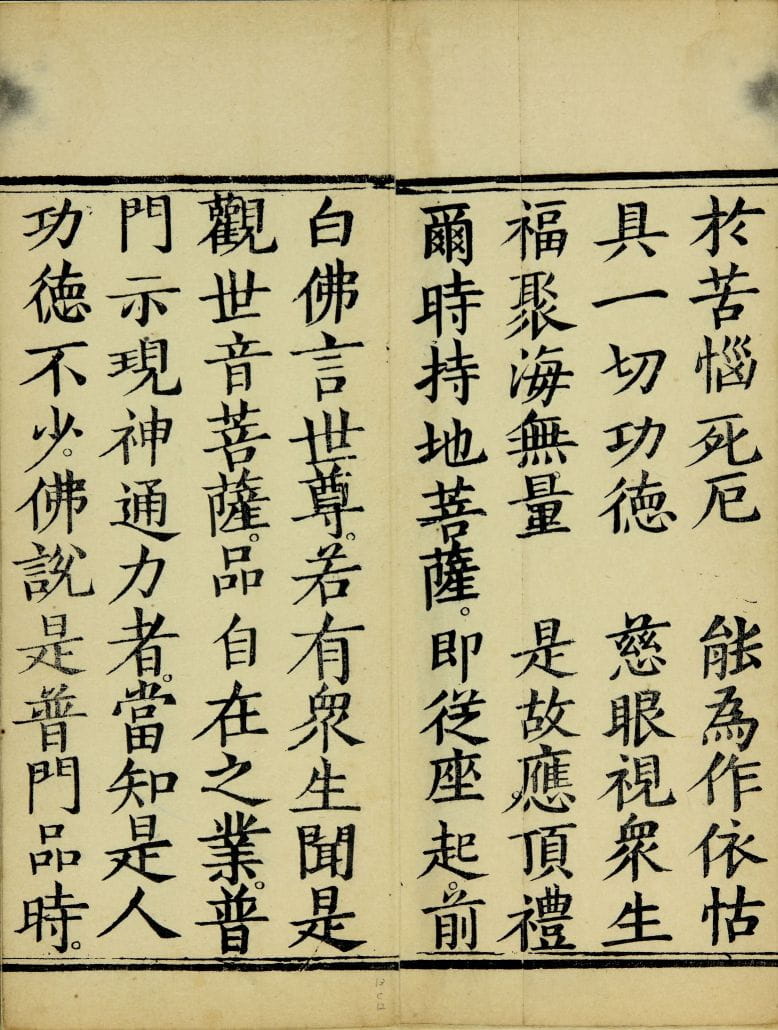 於苦惱死厄　能為作依怙
具一切功德　慈眼視眾生
福聚海無量　是故應頂禮
爾時持地菩薩。即從座起。前
白佛言世尊。若有眾生聞是
觀世音菩薩。品自在之業。普
門示現神通力者。當知是人
功德不少。佛說是普門品時。